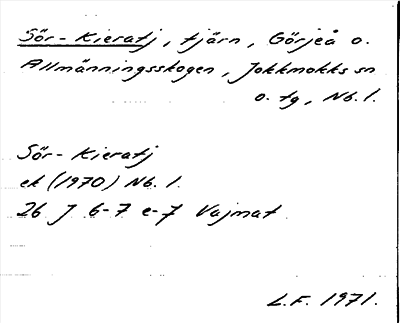 Sör-Kieratj, tjärn, Görjeå o.
Allmänningsskogen, Jokkmokks sn
o. tg, Nb. l.
Sör-Kieratj
ek (1970) Nb. l.
26 J 6-7 e-f Vajmat
L.F. 1971.